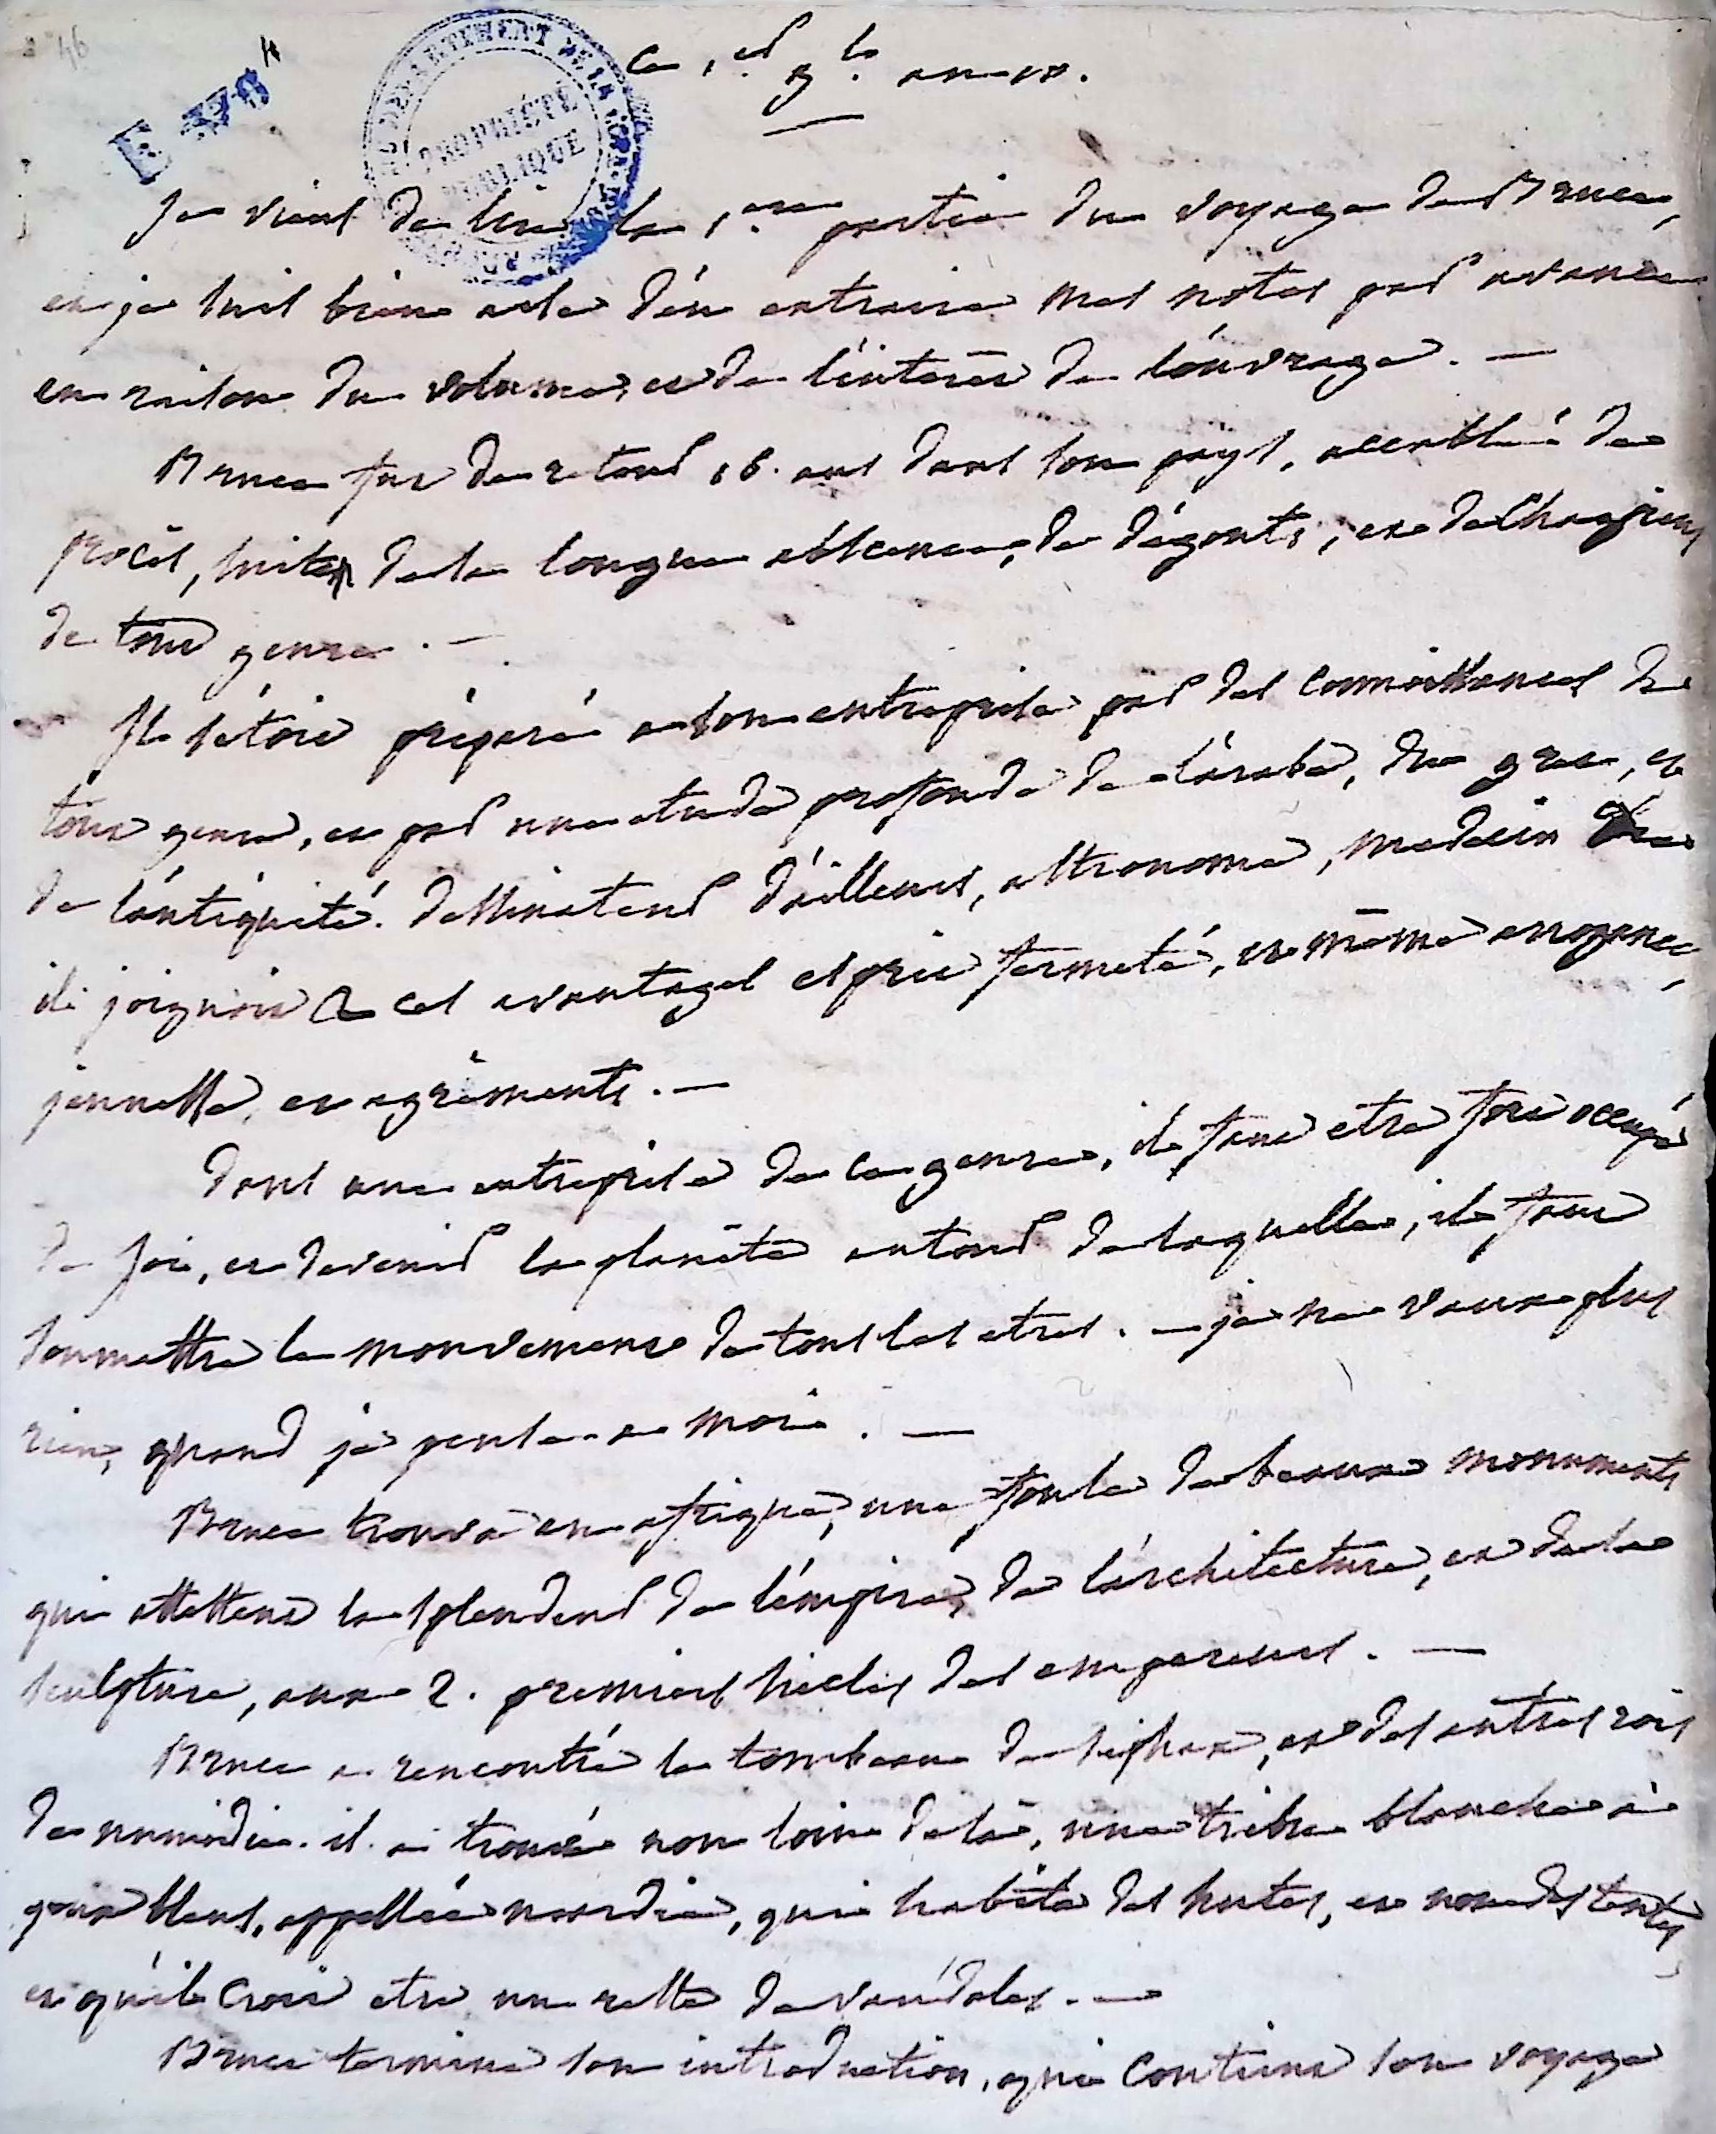 46
E
DEPARTEMENT DE LA
PROPRIÉTÉ
PUBLIQUE
Ce 1.er g.l an 10.
Je viens de lire la 1.ere partie du voyage de Bruce,
et je suis bien aise d'en extraire mes notes par avance
en raison du volume, et de l'intérêt de l'ouvrage. —
Bruce fut de retour 16. ans dans son pays, accablé de
procès, suites de sa longue absence, de dégouts, et de chagrins
de tout genre. —
Il s'étoit préparé a son entreprise par des connoissances de
tout genre, et par une etude profonde de l'arabe, du grec, et
de l'antiquité. dessinateur d'ailleurs, astronome, medecin
il joignoit a ces avantages esprit fermeté, et même arrogance,
jeunesse, et agréments. —
dans une entreprise de ce genre, il faut etre fort occupé
de soi, et devenir la planète autour de laquelle, il faut
soumettre le mouvement de tous les etres. — je ne vaux plus
rien, quand je pense a moi. —
Bruce trouva en afrique, une foule de beaux monuments
qui attestent la splendeur de l'empire, de l'architecture, et de la
sculpture, aux 2. premiers siecles des empereurs. —
Bruce a rencontré le tombeau de siphax, et des autres rois
de numidie. il a trouvé non loin de là, une tribu blanche a
yeux bleus, appellée nardie, qui habite des huttes, et non des tentes,
et qu'il croit etre un reste de vandales. —
Bruce termine son introduction, qui contient son voyage